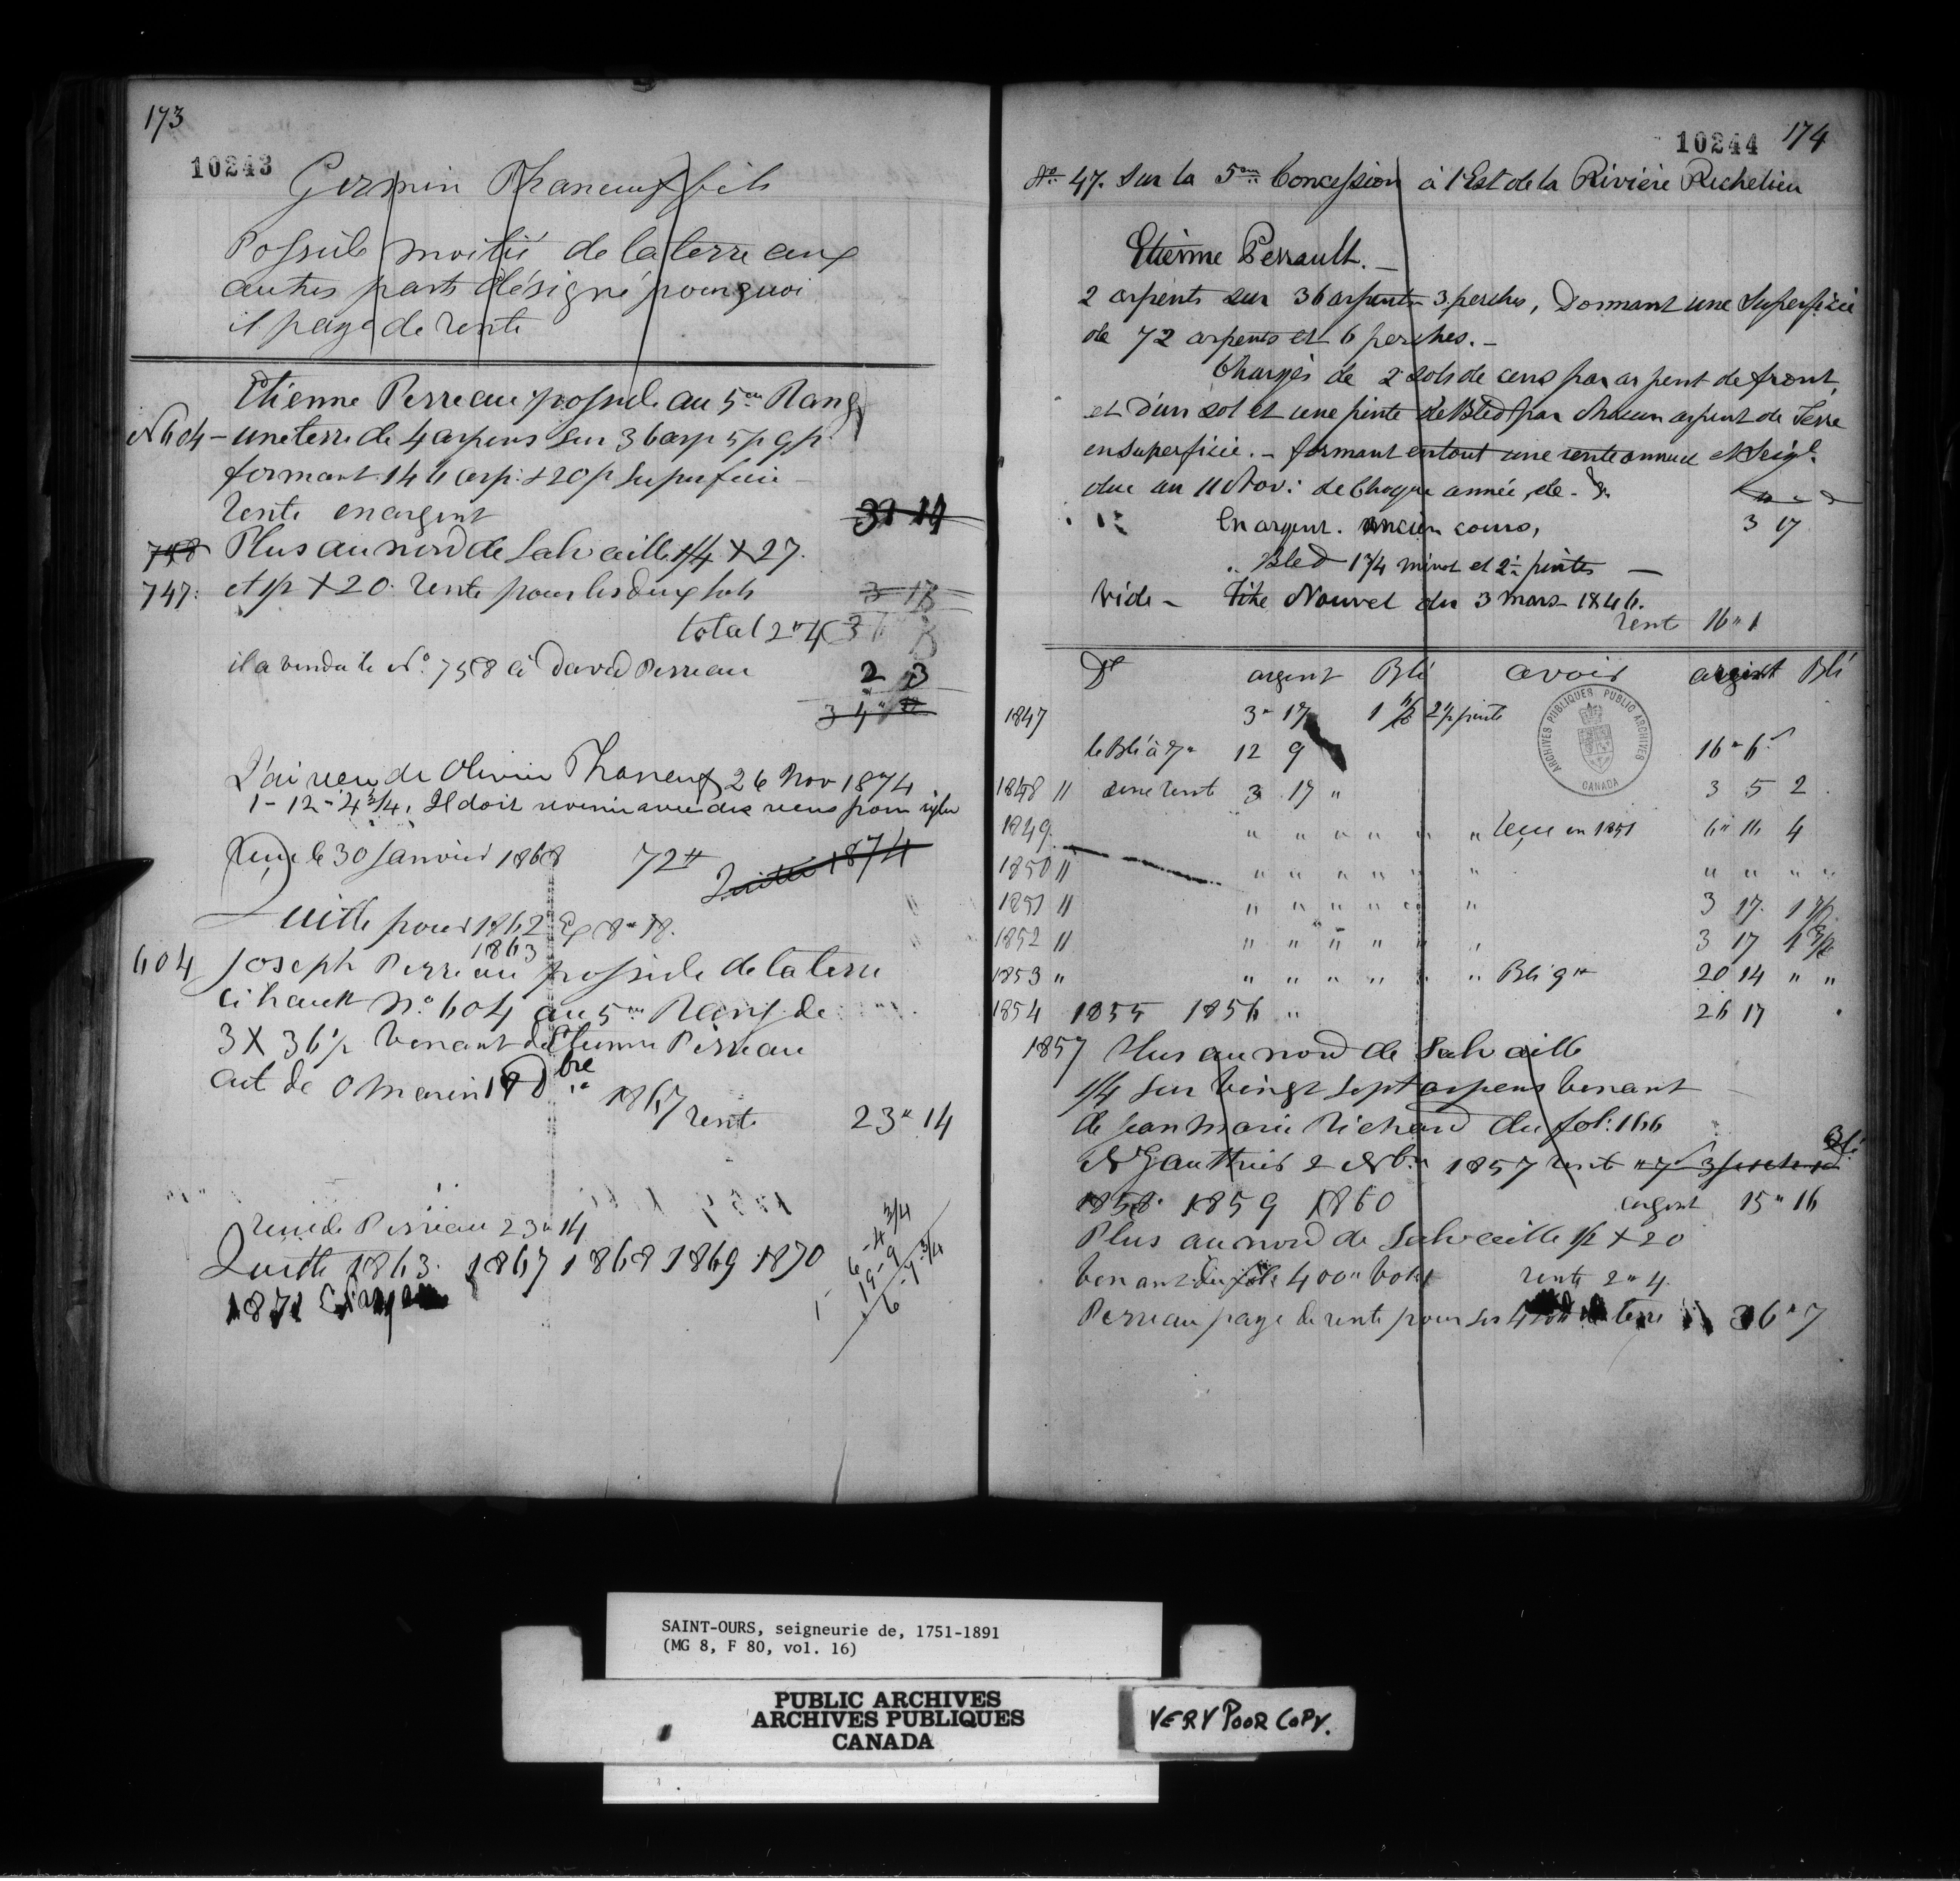 173
10243
Germin Phaneuf fils
Possede moitié de la terre aux
autres parts désigné pourquoi
il paye de rente
Etienne Perreau possede au 5me Rang
No 604 - une terre de 4 arpens sur 36 arp 5 p 9 p.
formant 146 arp: & 20 p Superficie
Rente en argent 32 14
758 Plus au nord de Salvaille 1/4 X 27.
747: et 1/2 X 20 rente pour les deux lots 3 13
total 2 " 4 36
il a vendu le No 758 à David Perreau 2 3
34 "
J'ai reçu de Olivier Phaneuf 26 Nov 1874
1 - 12 - 4 3/4. Il doit revenir avec des reçus pour régler
Reçu le 30 Janvier 1868 72 #
Quitte 1874
Quitte pour 1862 Ex 8 " 18.
1863
604 Joseph Perreau possede de la terre
ci haut No 604 au 5me Rang de
3 X 36 1/2 venant de Etienne Perreau
act de O Marin 18 Dbre
1867 rente 23 " 14
reçu de Perreau 23 " 14
Quitte 1863. 1867 1868 1869 1870
1871
6 - 4 3/4
1 - 19 - 9
6 - 1 3/4
10244 174
No 47. Sur la 5me Concession à l'Est de la Rivière Richelieu
Etienne Perrault. -
2 arpents sur 36 arpents 3 perches, Donnant une Superficie
de 72 arpents et 6 perches. -
Chargés de 2 sols de cens par arpent de front,
et d'un sol et une pinte de Bled par chacun arpent de Terre
en superficie. - formant en tout une rente annuel et Seigl.
due au 11 Nov: de Chaque année, de - &
En argent. ancien cours, 3 17
" Bled 1 3/4 minot et 2 1/2 pintes -
Vide - Titre Nouvel du 3 mars 1846.
rent 16 " 1
Dt argent Blé avoir argent Blé
1847 3 " 17 1 1/2 2 1/2 pinte
le Blé à 7 " 12 9 16 " 6
ARCHIVES PUBLIQUES PUBLIC ARCHIVES
CANADA
1848 " une rente 3 17 " 3 5 2
1849 " " " " " " reçu en 1851 6 " 16 4
1850 " " " " " " " " " " "
1851 " " " " " " " 3 17 1 1/2
1852 " " " " " " " 3 17 1 3/4
1853 " " " " " " " Blé 9 # 20 14 " "
1854 1855 1856 " 26 17
1857 Plus au nord de Salvaille
1/4 sur vingt sept arpens venant
de Jean Marie Richard du fol: 166
N Gauthier 2 Nbre 1857 rent " 7 3 Blé
1858 1859 1860 argent 15 " 16
Plus au nord de Salvaille 1/2 X 20
venant du fole 400 " vol 1 rente 2 " 4
Perreau paye de rente pour ses 4 terre 36 " 7
SAINT-OURS, seigneurie de, 1751-1891
(MG 8, F 80, vol. 16)
PUBLIC ARCHIVES
ARCHIVES PUBLIQUES
CANADA
VERY POOR COPY.